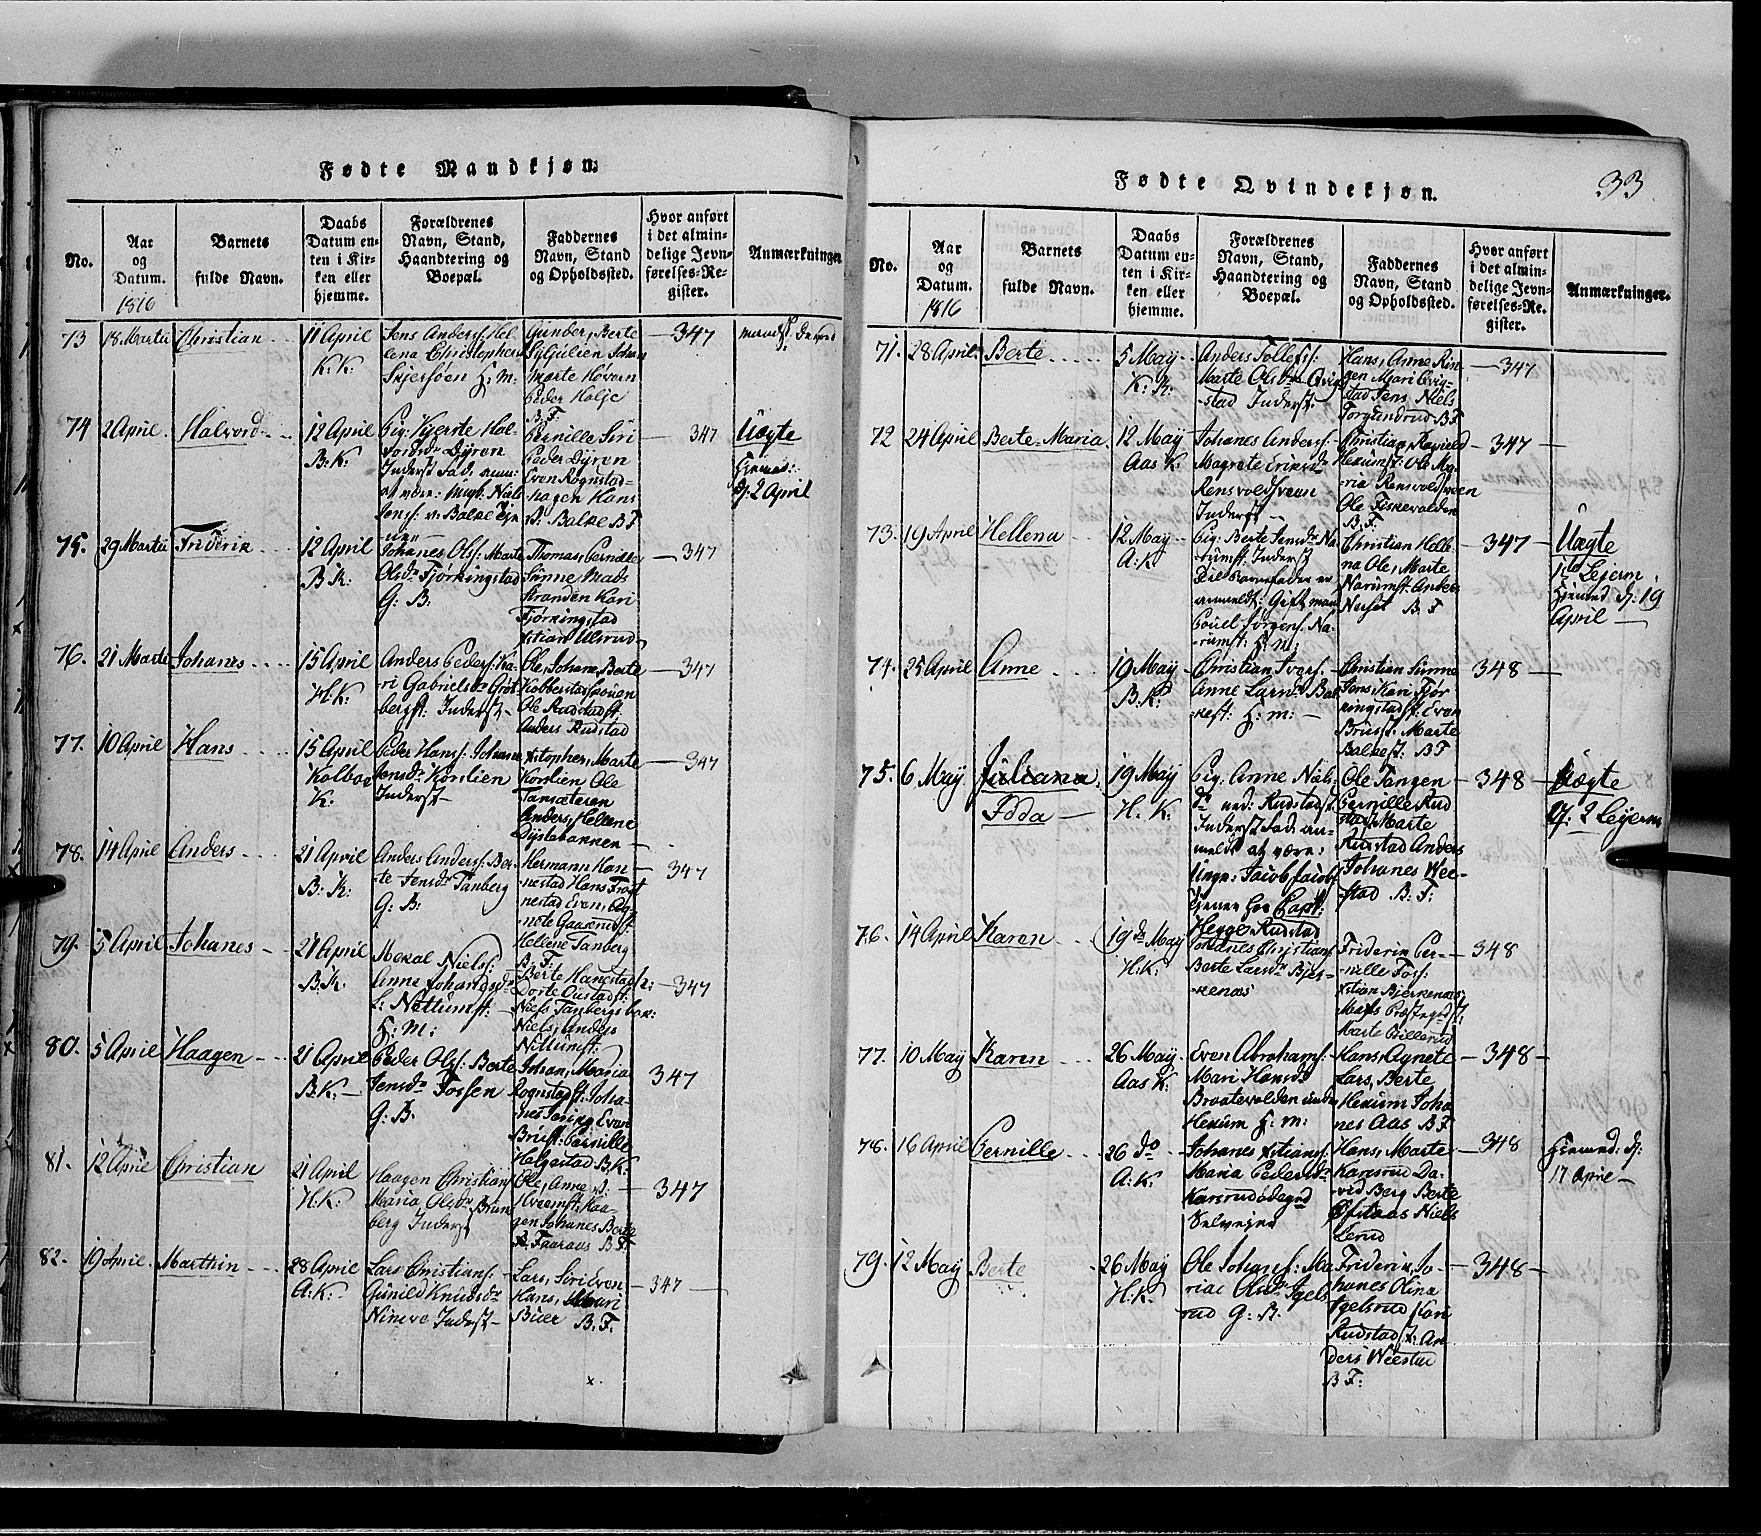 Fødte Mandkjøn.
No.
Aar og Datum.
1816
Barnets fulde Navn.
Daabs Datum enten i Kirken eller hjemme.
Forældrenes Navn, Stand, Haandtering og Boepæl.
Faddernes Navn, Stand og Opholdssted.
Hvor anført i det almindelige Jevnførelses-Register.
Anmærkninger
73 18 Martii Christian 11 April K: K:
Jens Anders: Hel-
lena Christophers
Skjersøen H: M:
Gunder, Berte
Johan
Marte Høvern
Peder Holje
B. F.
347
74 2 April. Halvord 12 April B: K:
Pig: Kjerste Hal-
vordsdr Dyren
Inderst
Jens: v: Balke
Pernille Siri
Peder Dyren
Even Rognstad-
hagen Hans
Balke B F
347
Uægte
Hjemed:
d: 2 April
75. 29 Martii Friderik 12 April B K:
Johanes Ols: Marte
Olsdr Fjørkingstad
G: B:
Thomas, Pernille
Sünne Mads
Stranden Kari
Fjørkingstad
Xstian Ulsrud
347
76. 21 Marti Johanes 15 April H: K:
Anders Peders: Ka-
ri Gabrielsdr Grøt
bergst: Inderst
Ole, Johane, Berte
Kobberstadspouen
Ole Rudstadst
Anders Rudstad
347
77. 10 April Hans 15 April Kolboe K.
Peder Hans: Johane
Jensdr Korslien
Inderst
Xstopher, Marte
Korslien Ole
Tansæteren
Anders, Hellene
Dystebannen
347
78. 14 April Anders 21 April B: K:
Anders Anders: Ber-
te Jensdr Tanberg
G: B:
Hermann Kon-
nestad Hans Frogt
nestad Even, Ag-
note Gaasrudst
Hellene Tanberg
B. F:
347
79. 5 April Johanes 21 April B: K:
Mekal Niels:
Anne Johandsdr
L: Nøttumst:
H: M:
Berte Hangstad
Dorte Oustadst:
Niels Tanbergsbak:
Niels, Anders
Nettumst:
347
80. 5 April Haagen 21 April B: K:
Peder Ols: Berte
Jensdr Fossen
G: B.
Johan, Maria
Rognstadst: Joha-
nes Evan
Brust: Pernille
Helgestad B F
347
81. 12 April Christian 21 April H: K:
Haagen Christians
Maria Olsdr Brun
berg Inderst
Ole, Anne
Kveemst: Haa-
gen Johanes Berte
Faaraas B F:
347
82. 19 April. Marthin 28 April A: K:
Lars Christians:
Gunild Knudsdr
Nineve Inderst
Lars, Siri Even
Hans, Mari
Büer B. F.
347
x.
Fødte Qvindekjøn.
33
No.
Aar og Datum.
1816
Barnets fulde Navn.
Daabs Datum enten i Kirken eller hjemme.
Forældrenes Navn, Stand, Haandtering og Boepæl.
Faddernes Navn, Stand og Opholdssted.
Hvor anført i det almindelige Jevnførelses-Register.
Anmærkninger.
71. 28 April. Berte 5 May K: K:
Anders Tollefs:
Marte Olsdr Qvig
stad Inderst:
Hans, Anne Rin-
gen Mari Qvig-
stad Jens, Niels
Torgundrud B F
347
72 24 April Berte Maria 12 May Aas K:
Johanes Anders:
Magrete Eriksdr
Rensvoldsveen
Inderst
Christian, Ragnild
Hexumst: Ole Ma-
ria Rensvoldsveen
Ole Fiskevolden
B: F:
347
73. 19 April Hellena 12 May A: K
Pig: Berte Jensdr Na-
rumst: Inderst
anmeldt: Gift man
Povel Jørgens: Na-
rumst: H: M:
Christian Helle-
na Ole, Marte
Narumst: Anders
Nøset B F
347
Uægte
1ste Lejerm.
Hjemed: d: 19
April
74. 25 April Anne 19 May B: K:
Christian Ivers:
Anne Larsdr Bal
kest: H: M:
Christian Sünne
Jens, Kari Fjør
kingstadst: Even
Brusst: Marte
Balkest: B F
348
75. 6 May Juliana Idda 19 May H: K:
Pig: Anne Niels-
dr Rudstadst
Inderst Fad: an-
meldt at være:
Ungk: Jacob Jacobs
tjener hos Capt:
Hegge Rudstad
Ole Tangen
Pernille Rud
stadst: Marte
Rudstad Anders
Johanes Wee-
stad B: F:
348
Uægte
d: 2 Lejerm
76. 14 April Karen 19de May H: K:
Johanes Christians
Berte Larsdr Bjer-
kenæs
Friderik Per-
nille Foss:
Xstian Bjerkenæs
Mads Præstegrdst:
Marte Billerud
348
77. 10 May Karen 26 May Aas K:
Even Abrahams:
Mari Hansdr
Braatevolden under
Hexum H: M:
Hans, Agnete
Lars, Berte
Hexum Joha
nes Aas B F
348
78. 16 April Pernille 26 do A: K:
Johanes Xstians:
Maria Pedersdr
Karsrudødegrd
Selvejer
Hans, Marte
Karsrud Da-
vid Berg Berte
Øfstaas Niels
Lerud
348
Hjemed: d:
17 April
79. 12 May Berte 26 May H: K:
Ole Johans: Ma
riae Olsdr Igels
rud G: B.
Friderik, Jo-
hanes Olina
Igelsrud Kari
Rudstadst: An
ders Weestad
B F:
348